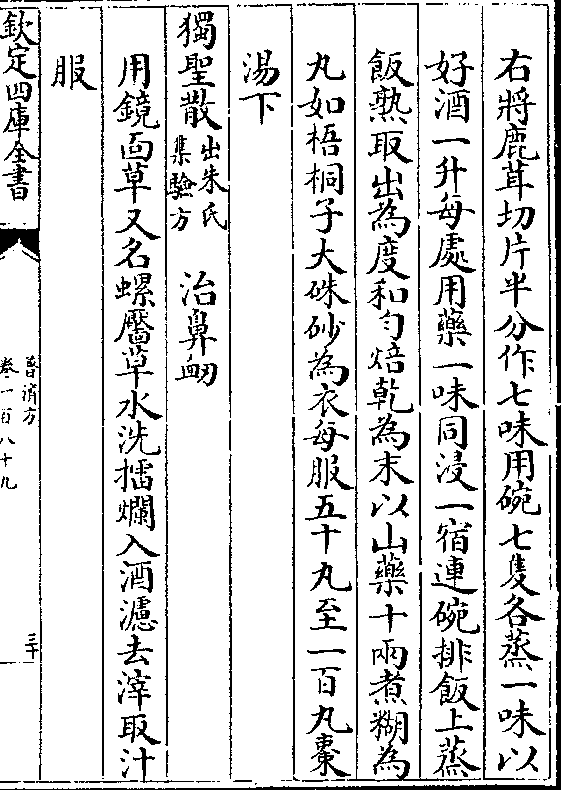 右將鹿茸切片半分作七味用碗七隻各蒸一味以
好酒一升每處用藥一味同浸一宿連碗排飯上蒸
飯熟取出為度和勻焙乾為末以山藥十兩煮糊為
丸如梧桐子大硃砂為衣每服五十丸至一百丸棗
湯下
獨聖散出朱氏集驗方 治鼻衂
用鏡面草又名螺靨草水洗擂爛入酒濾去滓取汁
服
欽定四庫全書
普濟方
卷一百八十九
三十